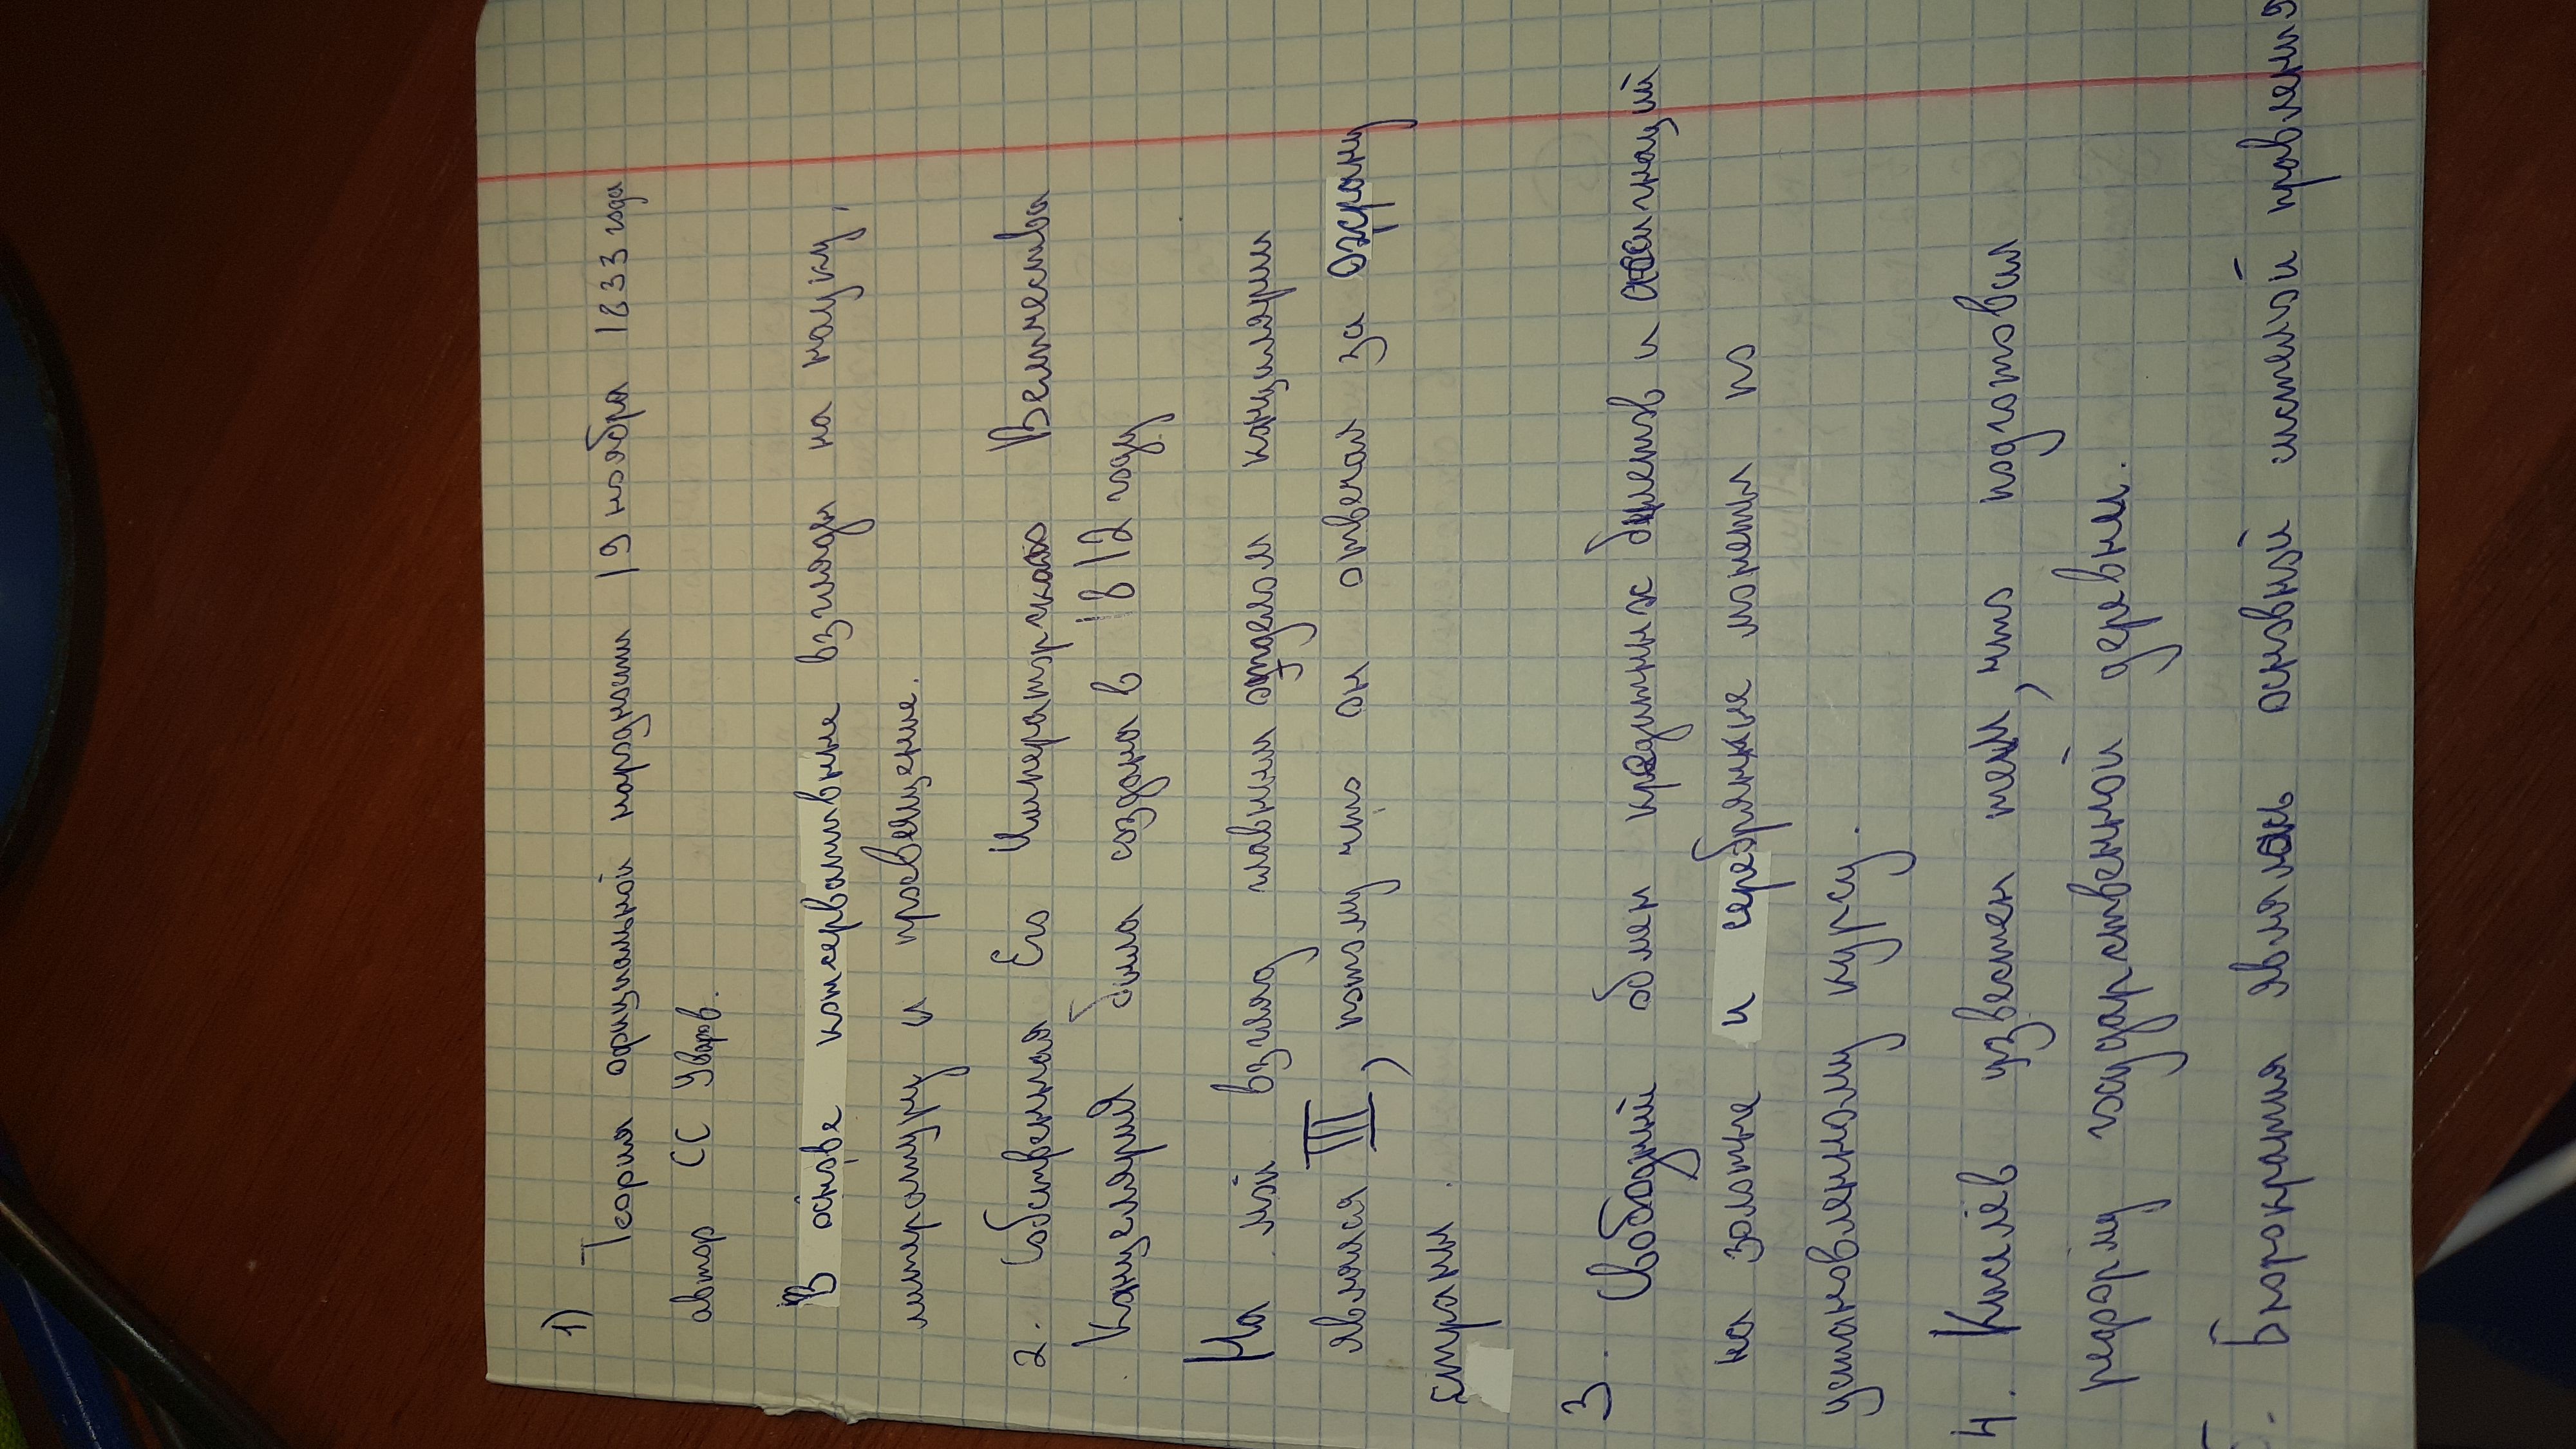 1)
Теория официальной народности 19 ноября 1833 года
автор СС Уваров.
В основе консервативные взгляды на науку,
литературу и просвещение.
2. Собственная Его Императорская Величества
Канцелярия была создана в 1812 году
На мой взгляд главным отделом канцелярии
являлся III, потому что он отвечал за охрану
страны.
3. Свободный обмен кредитных билетов и ассигнаций
на золотые и серебряные монеты по
установленному курсу.
4. Киселёв известен тем, что подготовил
реформу государственной деревни.
5. Бюрократия являлась основной системой правления